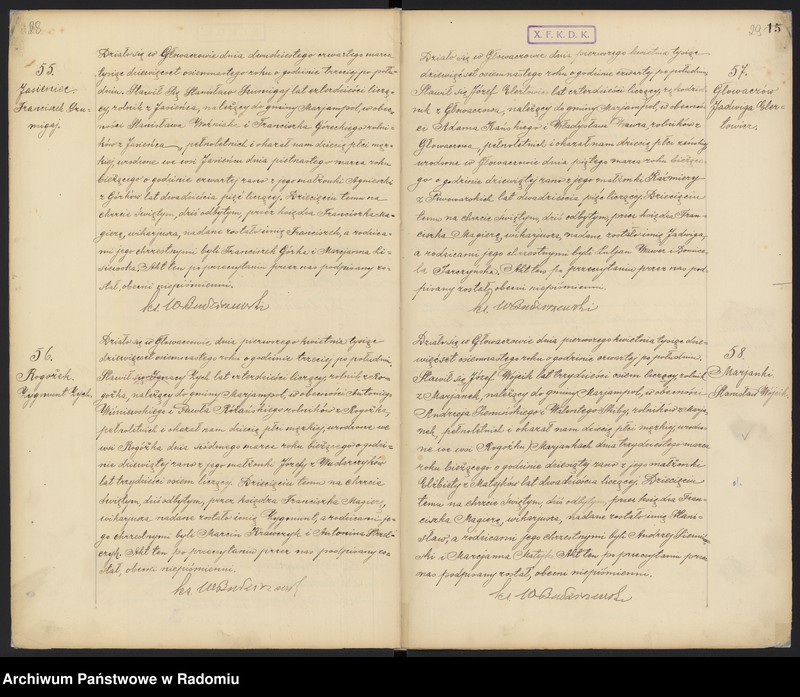 28
55.
Jasieniec.
Franciszek Szu-
migaj.
Działo się w Głowaczowie dnia dwudziestego czwartego marca
tysiąc dziewięćset osiemnastego roku o godzinie trzeciej po połu-
dniu. Stawił się Stanisław Szumigaj lat czterdzieści liczą-
cy, rolnik z Jasieńca, należący do gminy Marjampol, w obec-
ności Stanisława Woźniaka i Franciszka Góreckiego rolni-
ków z Jasieńca, pełnoletnich i okazał nam dziecię płci męz-
kiej, urodzone we wsi Jasieńcu dnia piętnastego marca roku
bieżącego o godzinie czwartej rano z jego małżonki Agnieszki
z Górków lat dwadzieścia pięć liczącej. Dziecięciu temu na
chrzcie świętym, dziś odbytym, przez księdza Franciszka Ma-
gierę, wikarjusza, nadane zostało imię Franciszek, a rodzica-
mi jego chrzestnymi byli Franciszek Górka i Marjanna
Akt ten po przeczytaniu przez nas podpisany zo-
stał, obecni niepiśmienni.
ks. W Budziszewski
56.
Rogożek.
Zygmunt Zych.
Działo się w Głowaczowie dnia pierwszego kwietnia tysiąc
dziewięćset osiemnastego roku o godzinie trzeciej po południu.
Stawił się Ignacy Zych lat czterdzieści liczący, rolnik z Ro-
gożka, należący do gminy Marjampol, w obecności Antoniego
Wiśniewskiego i Pawła rolników z Rogożka,
pełnoletnich i okazał nam dziecię płci męzkiej, urodzone we
wsi Rogożku dnia siódmego marca roku bieżącego o godzi-
nie dziewiątej rano z jego małżonki Józefy z Wudarczyków
lat trzydzieści osiem liczącej. Dziecięciu temu na chrzcie
świętym, dziś odbytym, przez księdza Franciszka Magierę,
wikarjusza nadane zostało imię Zygmunt, a rodzicami je-
go chrzestnymi byli Marcin Krawczyk i Antonina
Akt ten po przeczytaniu przez nas podpisany zo-
stał, obecni niepiśmienni.
ks. W Budziszewski
X. F. K. D. K.
29 15
57.
Głowaczów
Jadwiga
Działo się w Głowaczowie dnia pierwszego kwietnia tysiąc
dziewięćset osiemnastego roku o godzinie czwartej po południu
Stawił się Józef lat czterdzieści liczący,
z Głowaczowa, należący do gminy Marjampol, w obecnoś-
ci Adama i Władysława Wawra, rolników z
Głowaczowa, pełnoletnich i okazał nam dziecię płci żeńskiej
urodzone w Głowaczowie dnia piątego marca roku bieżące-
go o godzinie dziewiątej rano z jego małżonki Kazimiery
z lat dwadzieścia pięć liczącej. Dziecięciu
temu na chrzcie świętym, dziś odbytym, przez księdza Fran-
ciszka Magierę, wikarjusza, nadane zostało imię Jadwiga,
a rodzicami jego chrzestnymi byli Wawer i Domice-
la. Akt ten po przeczytaniu przez nas pod-
pisany został, obecni niepiśmienni.
ks. W Budziszewski
58.
Marjanki.
Stanisław Wójcik.
Działo się w Głowaczowie dnia pierwszego kwietnia tysiąc dzie-
więćset osiemnastego roku o godzinie czwartej po południu.
Stawił się Józef Wójcik lat trzydzieści osiem liczący, rolnik
z Marjanek, należący do gminy Marjampol, w obecności
Andrzeja i Walentego Skiby, rolników z Marja-
nek, pełnoletnich i okazał nam dziecię płci męzkiej, urodzo-
ne we wsi Rogożku Marjankach dnia trzydziestego marca
roku bieżącego o godzinie dziesiątej rano z jego małżonki
Elżbiety z Matyków lat dwadzieścia liczącej. Dziecięciu
temu na chrzcie świętym, dziś odbytym, przez księdza Fran-
ciszka Magierę, wikarjusza, nadane zostało imię Stani-
sław, a rodzicami jego chrzestnymi byli Andrzej
i Marjanna Matyk. Akt ten po przeczytaniu przez
nas podpisany został, obecni niepiśmienni.
ks. W Budziszewski
Archiwum Państwowe w Radomiu